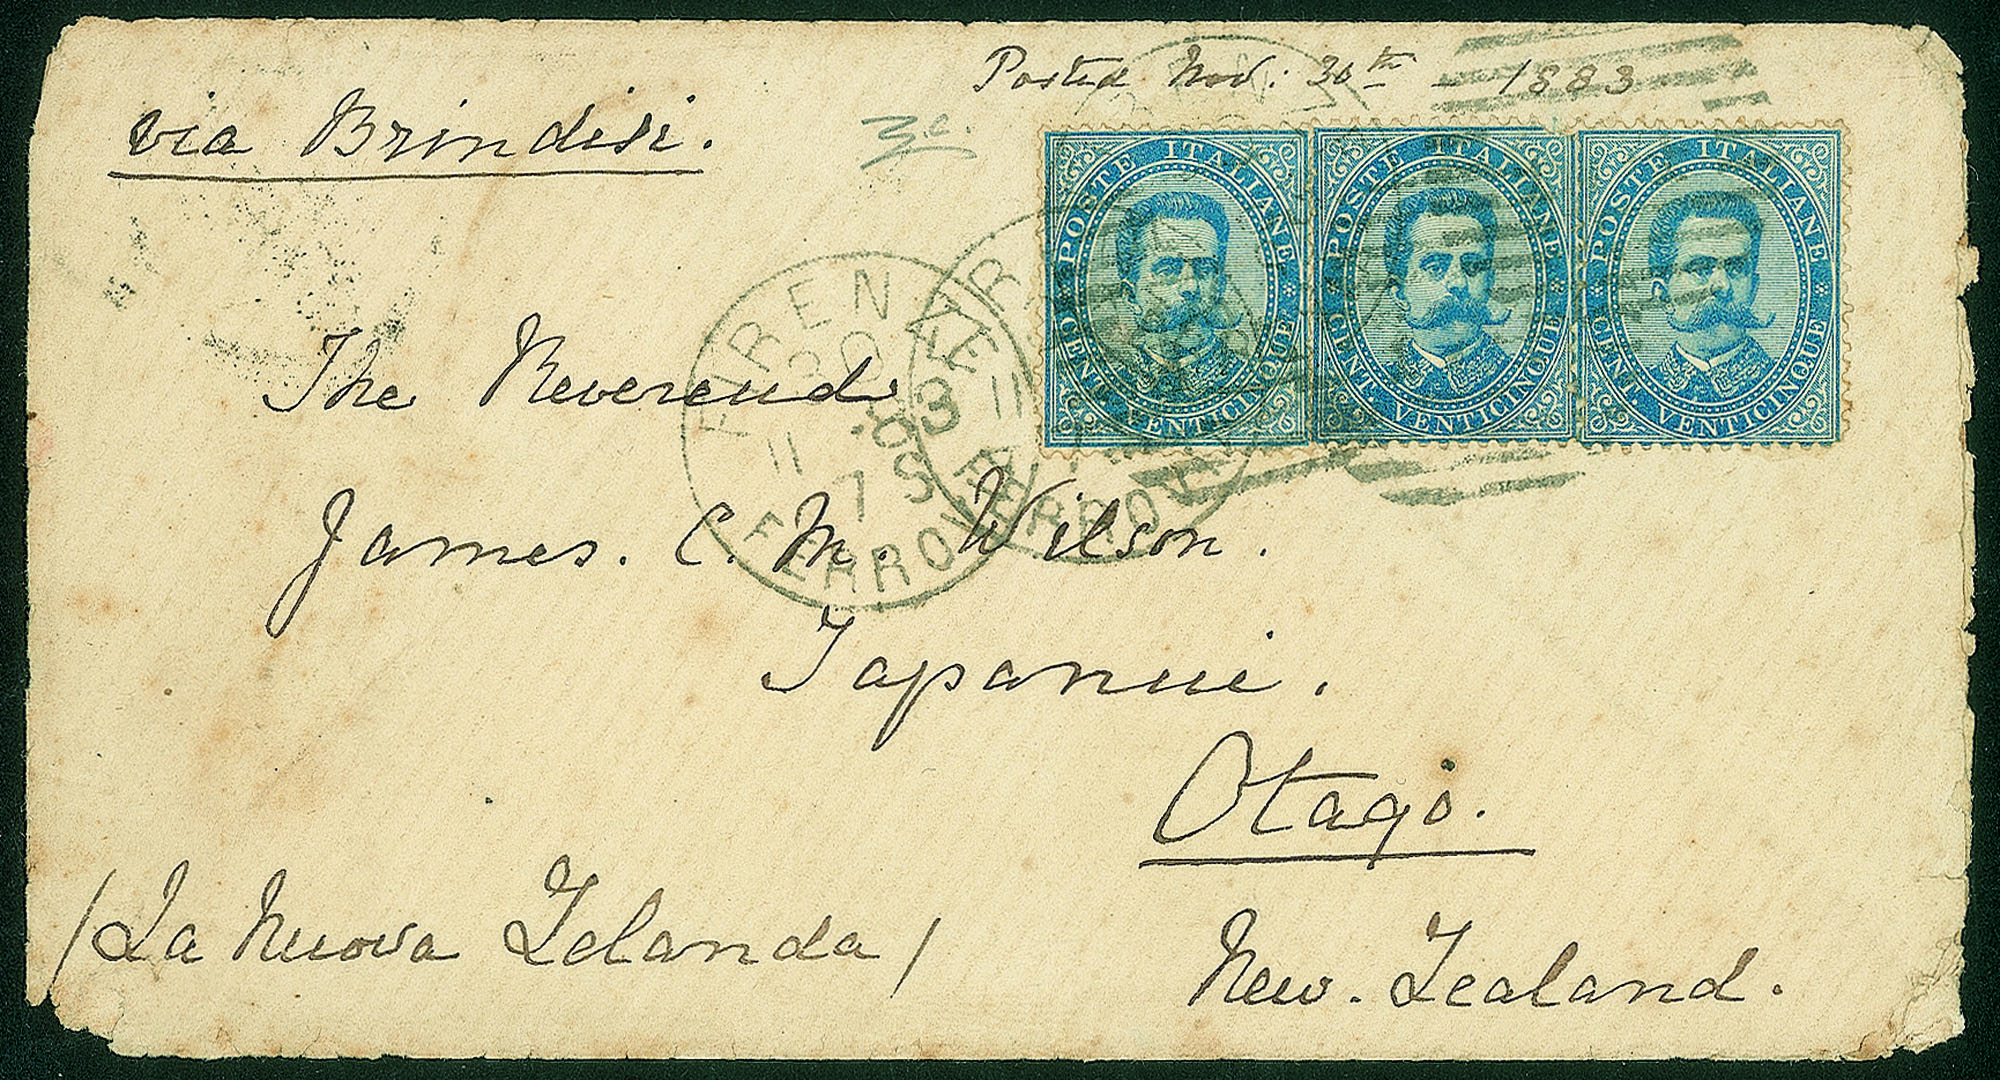 Posted Nov: 30th - 1883
via Brindisi.
3c.
POSTE ITALIANE
CENT. VENTICINQUE
POSTE ITALIANE
CENT. VENTICINQUE
POSTE ITALIANE
CENT. VENTICINQUE
FIREN
30
11 · 83
7 S
FERROVIA
The Reverend
James. C. M. Wilson.
Tapanui.
Otago.
(La Nuova Zelanda)
New. Zealand.